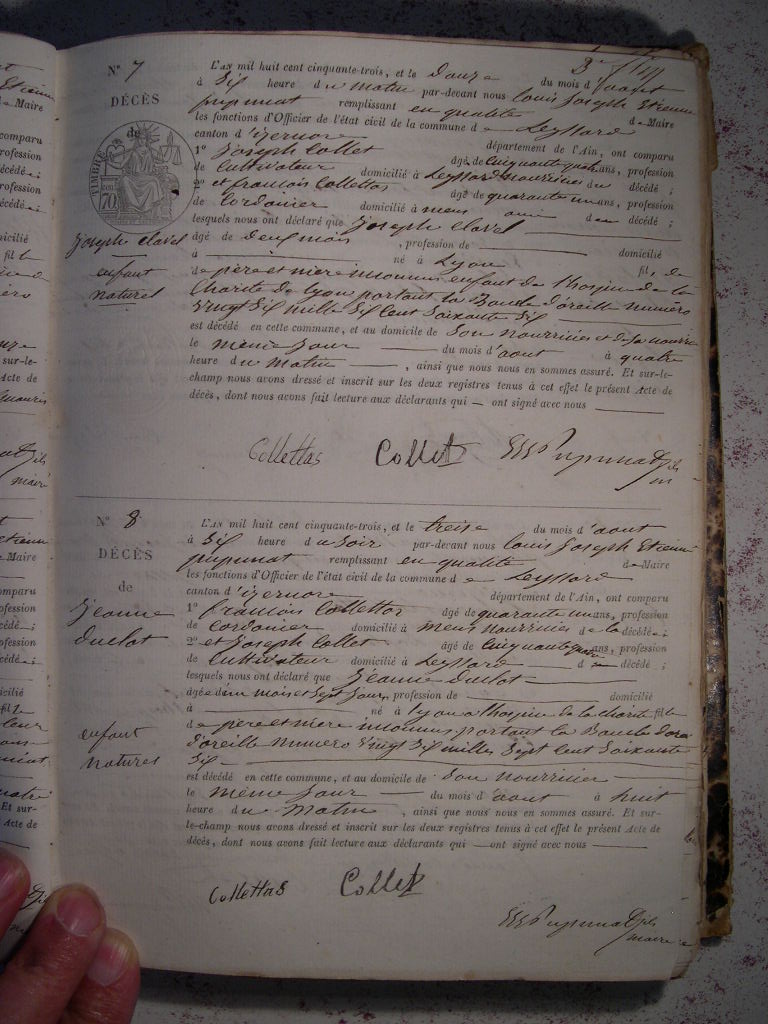 3e f
N° 7
DÉCÈS
de
TIMBRE
70
Joseph Clavel
enfant
naturel
L'AN mil huit cent cinquante-trois, et le Douze du mois d'aout
à Six heure du Matin par-devant nous Louis Joseph Etienne
pupunat remplissant en qualité de Maire
les fonctions d'Officier de l'état civil de la commune de Leyssard
canton d'izernore département de l'Ain, ont comparu
1° Joseph Collet âgé de Cinquante quatre ans, profession
de Cultivateur domicilié à Leyssard nourricier du décédé ;
2° et francois Collettas âgé de quarante un ans, profession
de Cordonier domicilié à mens ami du décédé ;
lesquels nous ont déclaré que Joseph Clavel
âgé de deux mois , profession de domicilié
à né à Lyon fil, de
de père et mère inconnus enfant de l'hospice de la
Charité de Lyon portant la Boucle d'oreille numéro
Vingt Six mille Six Cent Soixante Six
est décédé en cette commune, et au domicile de Son nourricier et de sa nourrice
le même Jour du mois d'aout à quatre
heure du Matin , ainsi que nous nous en sommes assuré. Et sur-le-
champ nous avons dressé et inscrit sur les deux registres tenus à cet effet le présent Acte de
décès, dont nous avons fait lecture aux déclarants qui — ont signé avec nous
Collettas Collet Pupunat fils
N° 8
DÉCÈS
de
Jeanne
Duclot
enfant
naturel
L'AN mil huit cent cinquante-trois, et le treise du mois d'aout
à Six heure du Soir par-devant nous Louis Joseph Etienne
pupunat remplissant en qualité de Maire
les fonctions d'Officier de l'état civil de la commune de Leyssard
canton d'izernore département de l'Ain, ont comparu
1° francois Collettas âgé de quarante un ans, profession
de Cordonier domicilié à mens nourricier de la décédée ;
2° et Joseph Collet âgé de Cinquante quatre ans, profession
de Cultivateur domicilié à Leyssard d décédé ;
lesquels nous ont déclaré que Jeanne Duclot
âgée d'un mois et Sept Jours, profession de domicilié
à né à Lyon a l'hospice de la Charité fille
de père et mère inconnus portant la Boucle d'oreille
d'oreille numéro Vingt Six milles Sept Cent Soixante
Six
est décédé en cette commune, et au domicile de Son nourricier
le même Jour du mois d'aout à huit
heure du Matin , ainsi que nous nous en sommes assuré. Et sur-
le-champ nous avons dressé et inscrit sur les deux registres tenus à cet effet le présent Acte de
décès, dont nous avons fait lecture aux déclarants qui — ont signé avec nous
Collettas Collet
Pupunat fils
maire